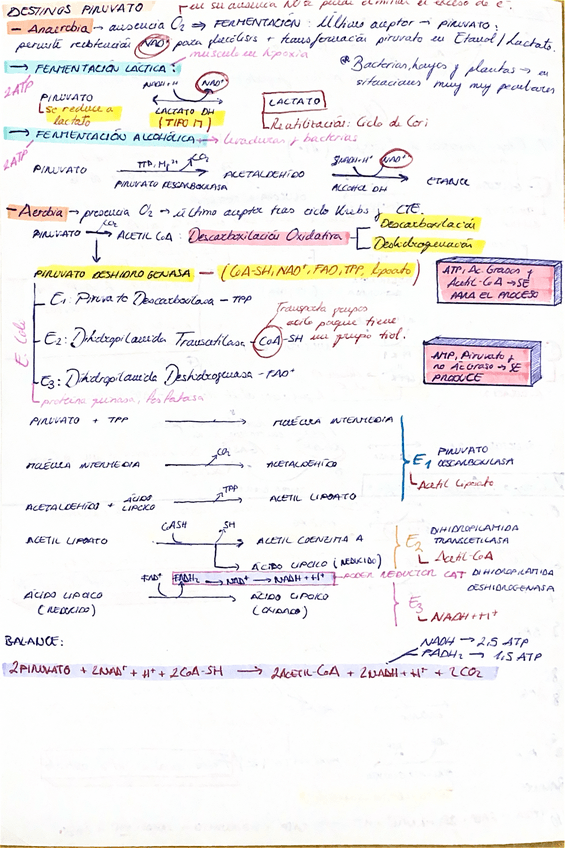 DESTINOS PIRUVATO
en su ausencia no se puede eliminar el exceso de e-.
- Anaerobia → ausencia O2 ⇒ FERMENTACIÓN: Último aceptor → PIRUVATO:
permite reobtención NAD+ para glicólisis + transformación piruvato en Etanol/Lactato.
→ FERMENTACIÓN LÁCTICA: músculo en hipoxia
* Bacterias, hongos y plantas → en
situaciones muy muy peculiares
2ATP
NADH+H+ NAD+
PIRUVATO LACTATO DH LACTATO
Se reduce a (TIPO M) Reutilización: Ciclo de Cori
lactato
→ FERMENTACIÓN ALCOHÓLICA: → levaduras y bacterias
2ATP
TPP, Mg2+ CO2 NADH+H+ NAD+
PIRUVATO → ACETALDEHÍDO → ETANOL
PIRUVATO DESCARBOXILASA ALCOHOL DH
- Aerobia → presencia O2 → último aceptor tras ciclo Krebs y CTE.
CO2 Descarboxilación
PIRUVATO → ACETIL CoA: Descarboxilación Oxidativa
Deshidrogenación
PIRUVATO DESHIDROGENASA — (CoA-SH, NAD+, FAD, TPP, lipoato)
ATP, Ac Grasos y
Acetil-CoA → SE
PARA EL PROCESO
E. Coli
E1: Piruvato Descarboxilasa - TPP
Transporta grupos
acilo porque tiene
E2: Dihidropilamida Transacetilasa - CoA-SH un grupo tiol.
AMP, Piruvato y
no Ac Graso → SE
PRODUCE
E3: Dihidropilamida Deshidrogenasa - FAD+
proteína quinasa, fosfatasa
PIRUVATO + TPP → MOLÉCULA INTERMEDIA
CO2
MOLÉCULA INTERMEDIA → ACETALDEHÍDO
E1 PIRUVATO
DESCARBOXILASA
Acetil Lipoato
TPP
ACETALDEHÍDOS + ÁCIDOS LIPOICO → ACETIL LIPOATO
CASH SH
ACETIL LIPOATO → ACETIL COENZIMA A
ÁCIDO LIPOICO (REDUCIDO)
E2 DIHIDROPILAMIDA
TRANSCETILASA
Acetil-CoA
FAD+ FADH2 → NAD+ → NADH+H+ → PODER REDUCTOR CAT
ÁCIDO LIPOICO → ÁCIDO LIPOICO
(REDUCIDO) (OXIDADO)
E3 DIHIDROPILAMIDA
DESHIDROGENASA
NADH+H+
BALANCE:
NADH → 2,5 ATP
FADH2 → 1,5 ATP
2PIRUVATO + 2NAD+ + H+ + 2CoA-SH → 2ACETIL-CoA + 2NADH + H+ + 2CO2